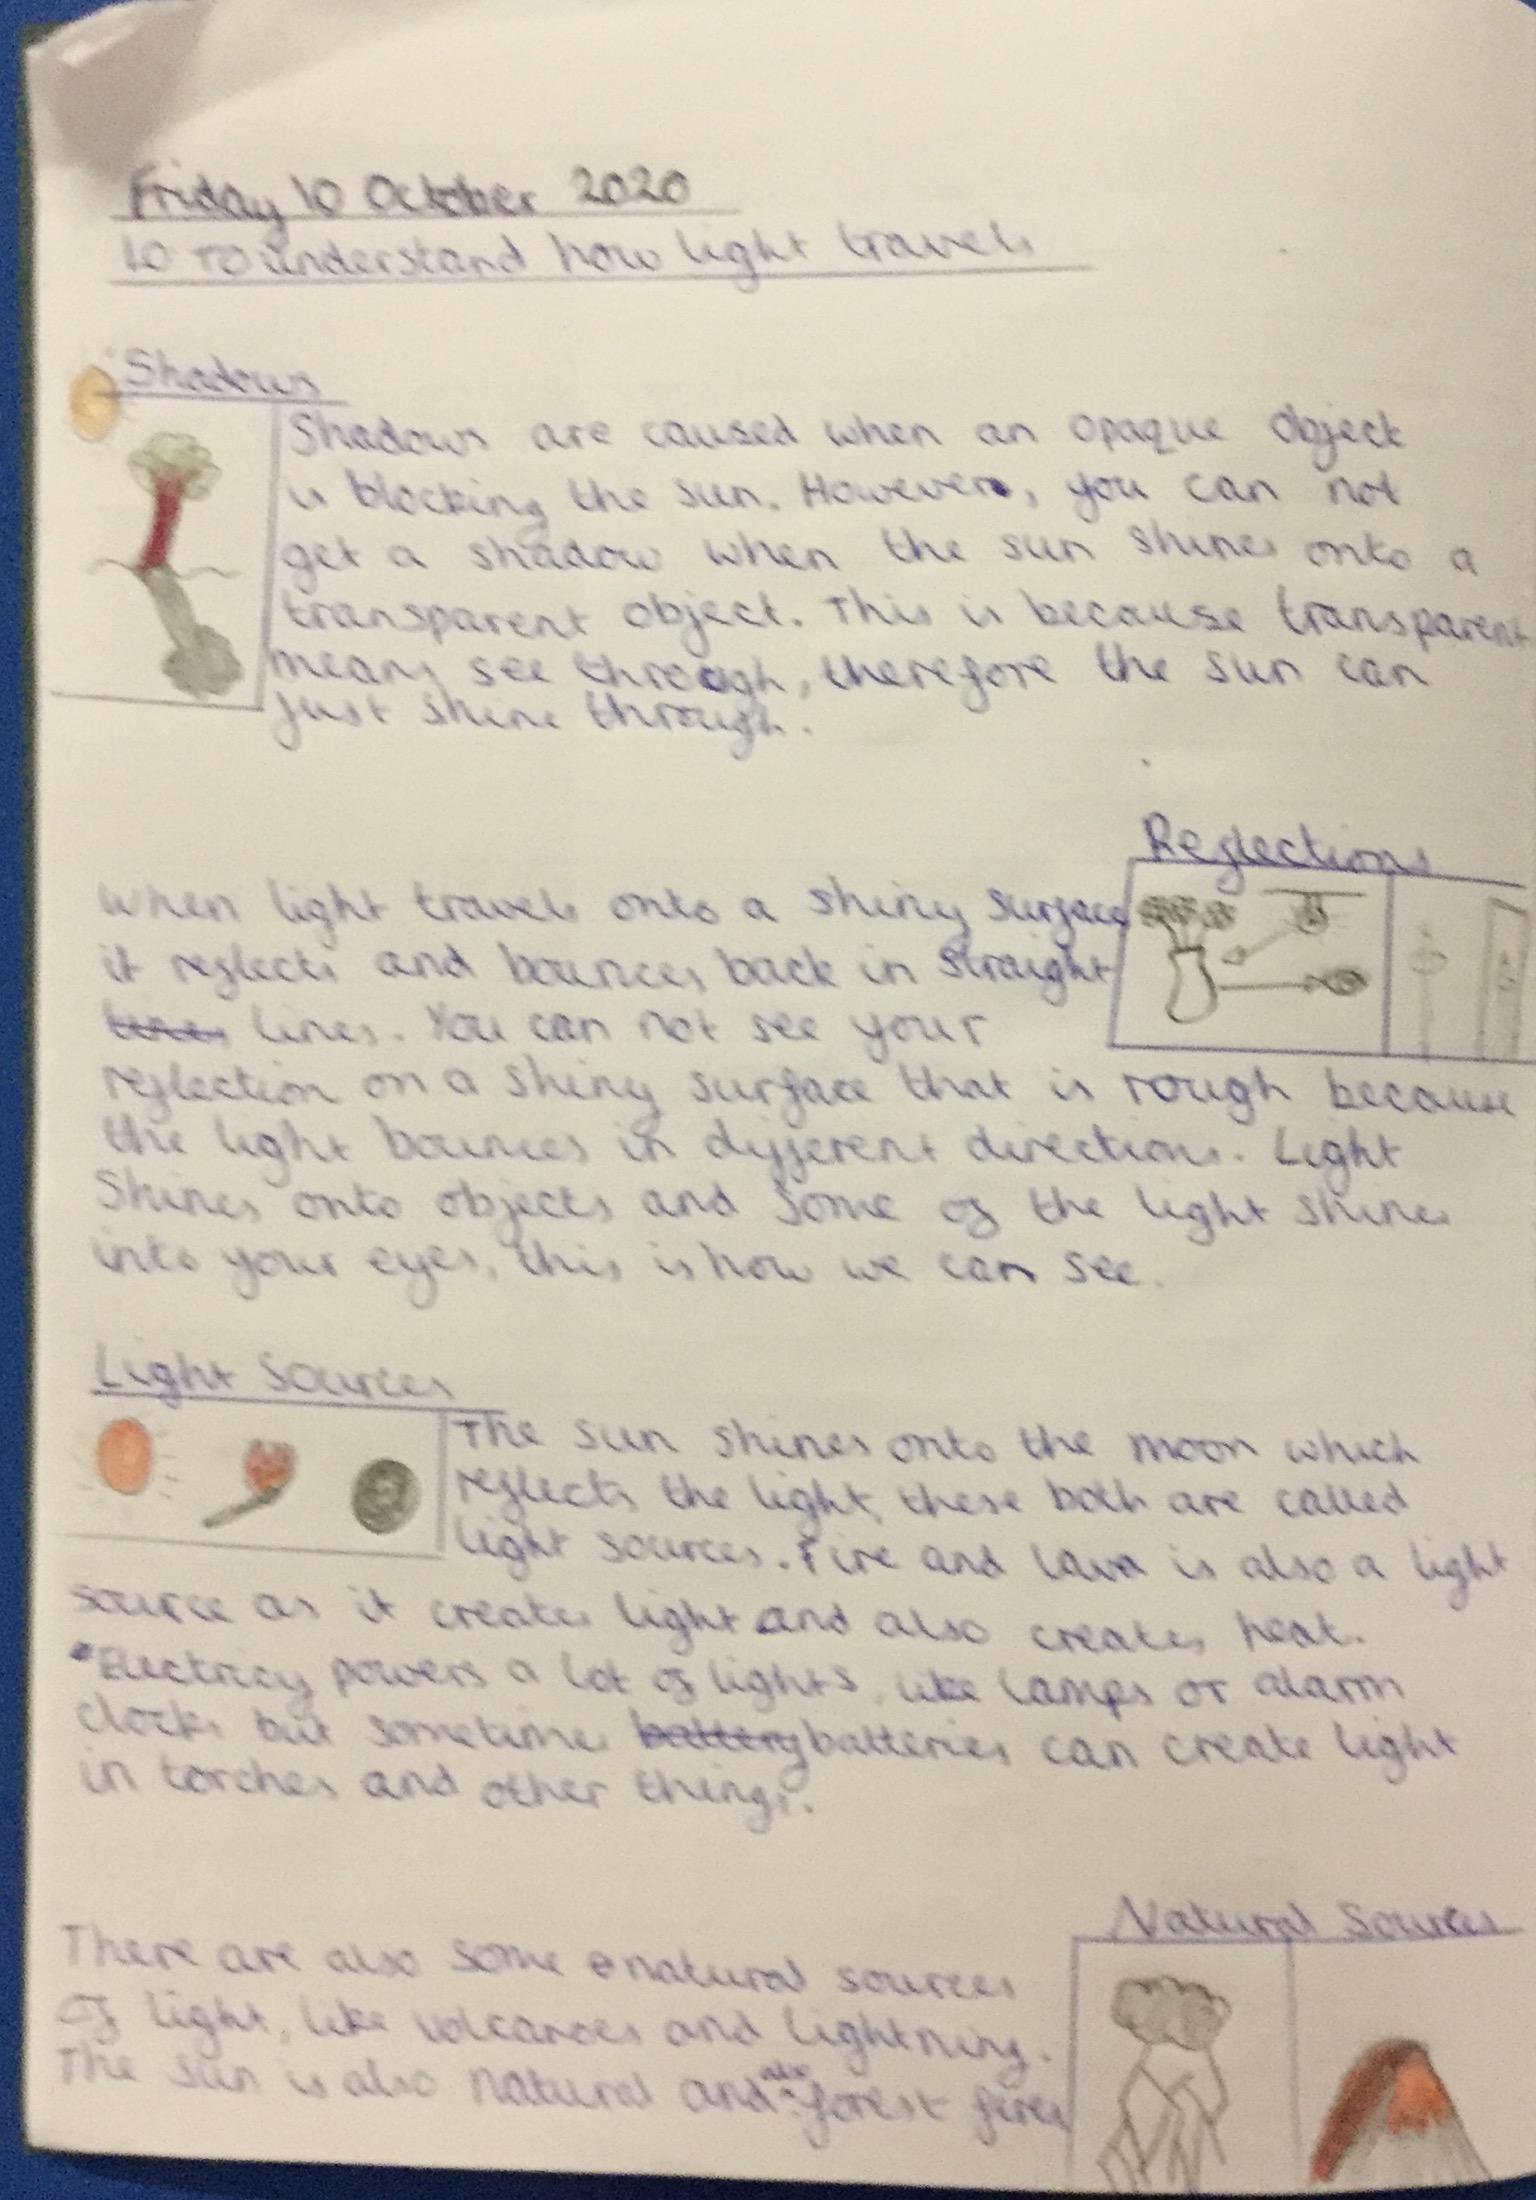 Friday 10 October 2020
LO To understand how light travels
Shadows
Shadows are caused when an opaque object
is blocking the sun. However, you can not
get a shadow when the sun shines onto a
transparent object. This is because transparent
means see through, therefore the sun can
just shine through.
Reflections
When light travels onto a shiny surface
it reflects and bounces back in straight
lines. You can not see your
reflection on a shiny surface that is rough because
the light bounces in different directions. Light
Shines onto objects and some of the light shines
into your eyes, this is how we can see.
Light Sources
The sun shines onto the moon which
reflects the light, these both are called
light sources. Fire and lava is also a light
source as it creates light and also creates heat.
Electricy powers a lot of lights, like lamps or alarm
clocks but sometimes battery batteries can create light
in torches and other things.
Natural Sources
There are also some natural sources
of light, like volcanoes and lightning.
The sun is also natural and also forest fires